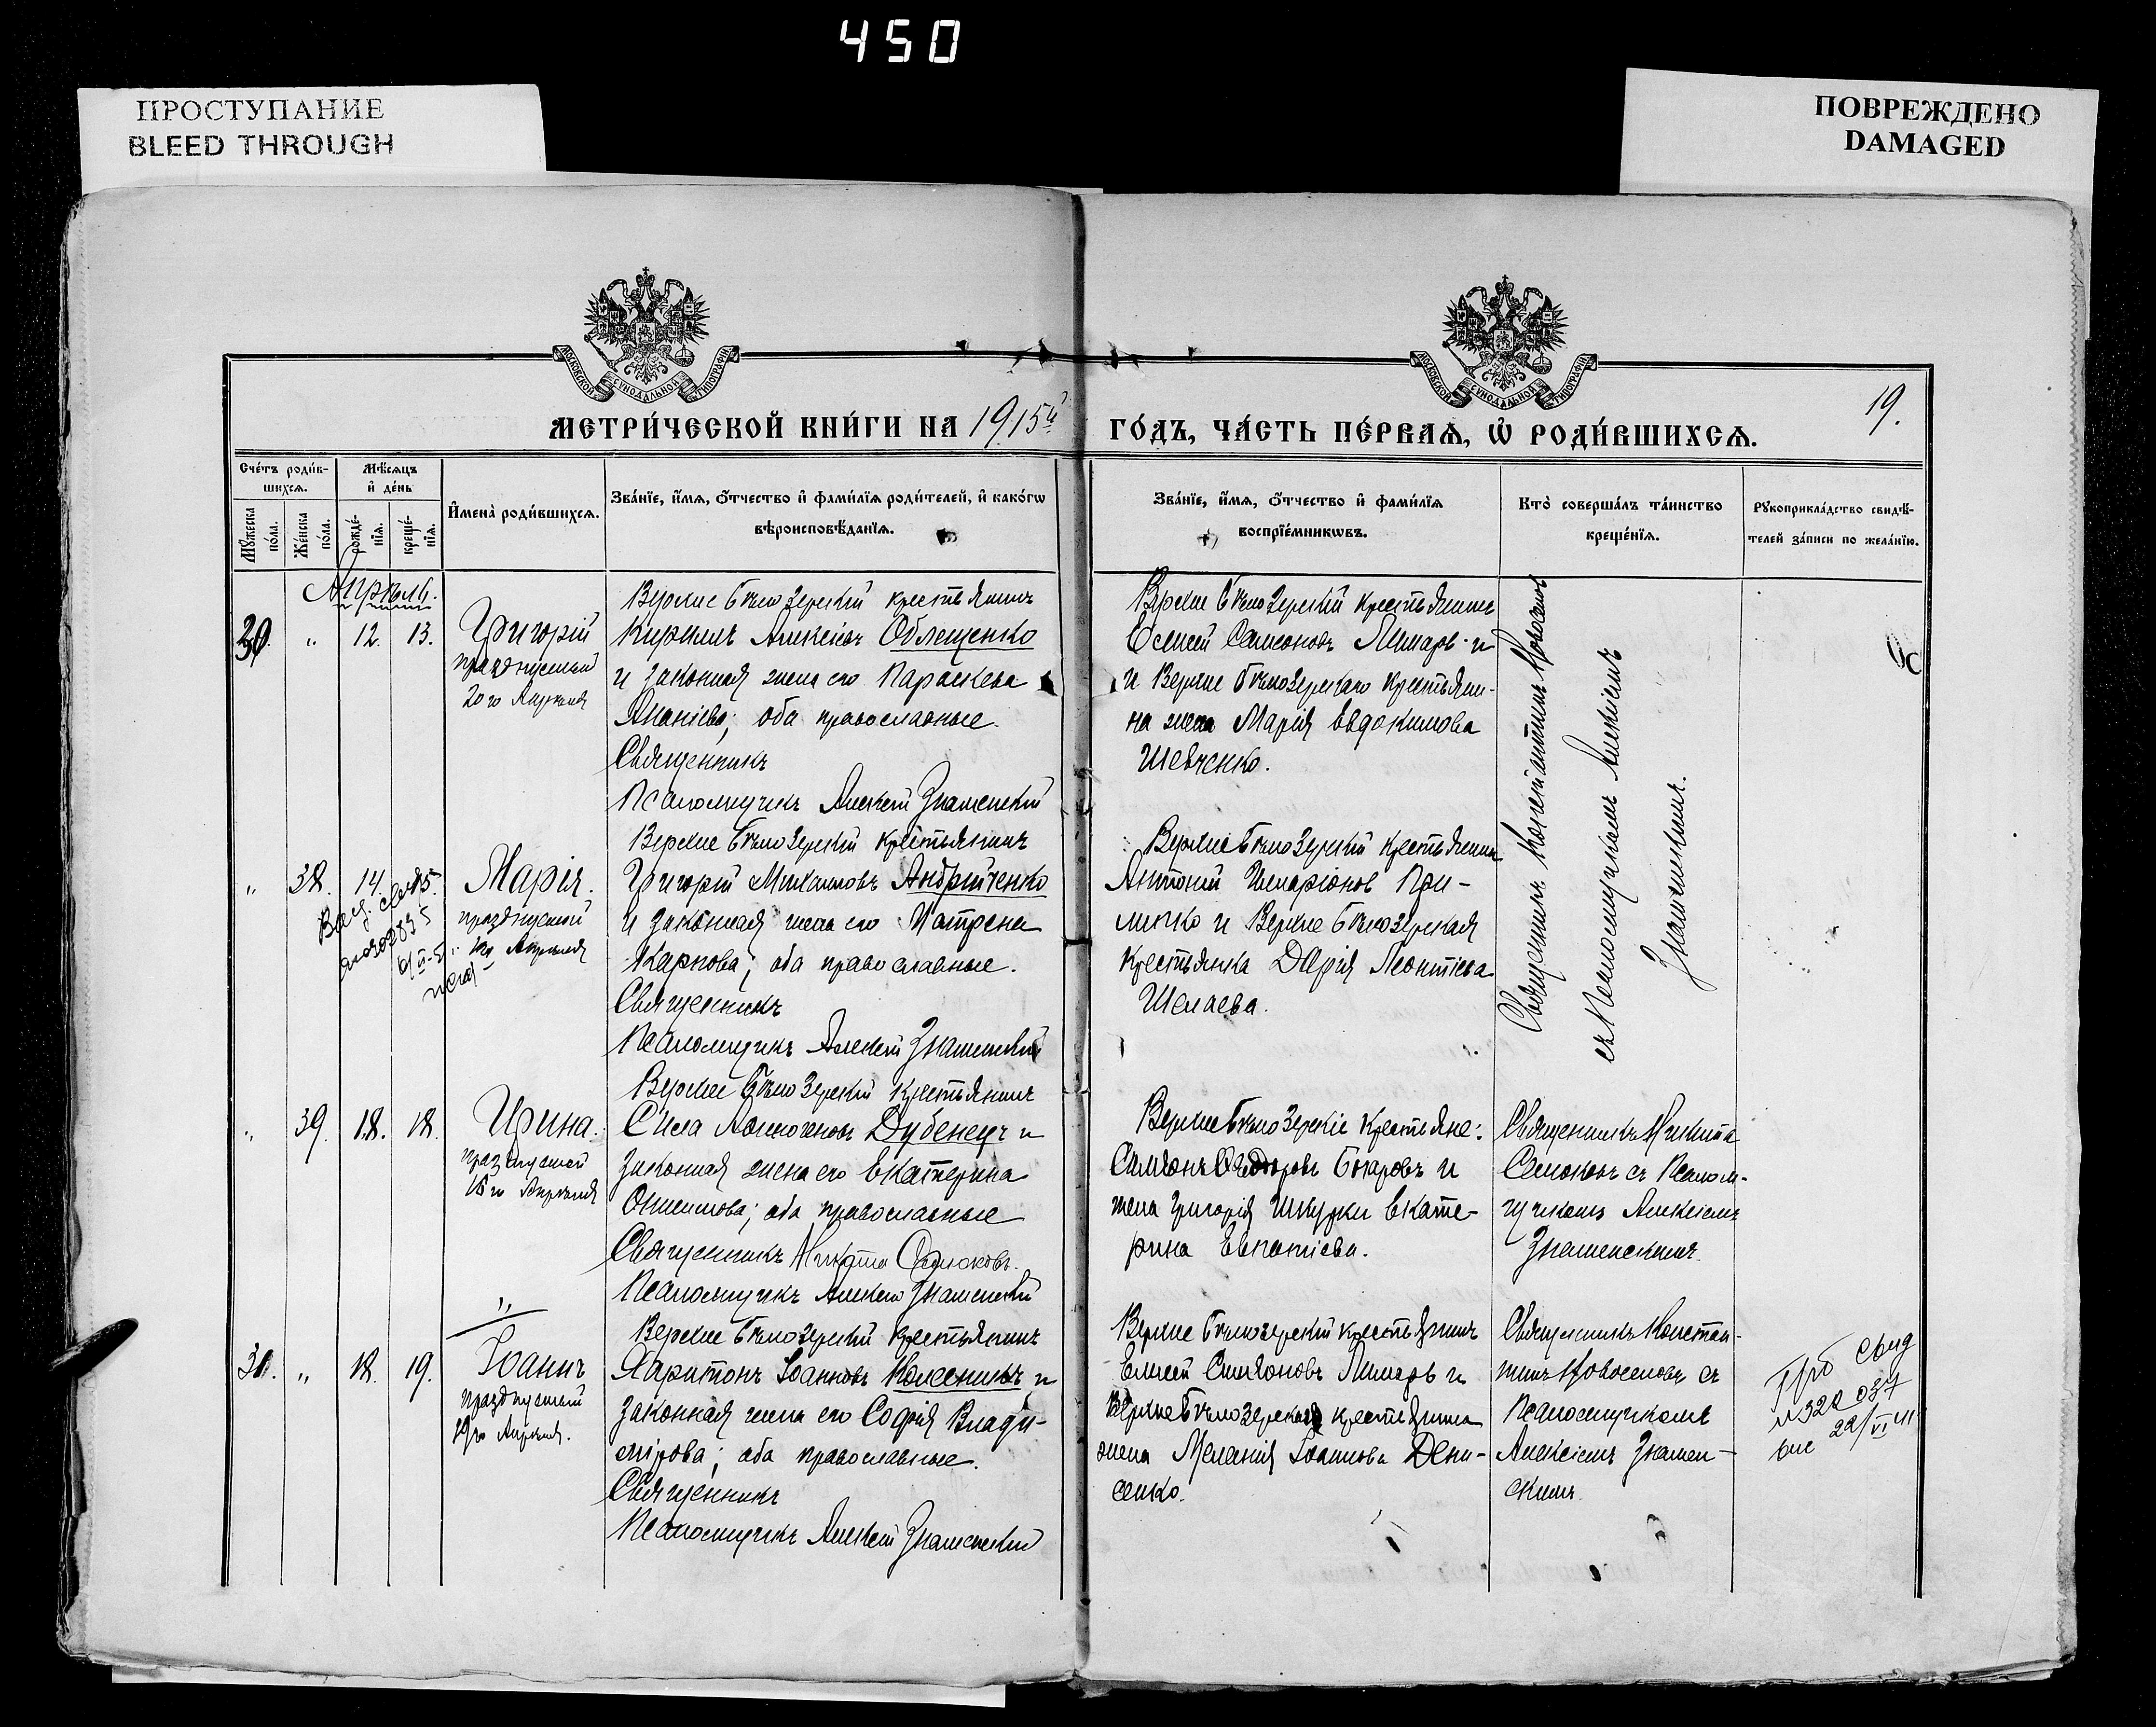 450
ПРОСТУПАНИЕ
BLEED THROUGH
ПОВРЕЖДЕНО
DAMAGED
МОСКОВСКОЙ СУНОДАЛЬНОЙ ТИПОГРАФІИ
МОСКОВСКОЙ СУНОДАЛЬНОЙ ТИПОГРАФІИ
МЕТРИ́ЧЕСКОЙ КНИ́ГИ НА 1915й
ГО́ДЪ, ЧА́СТЬ ПЕ́РВАѦ, Ѡ҆ РОДИ́ВШИХСѦ.
19.
Сче́тъ роди́в-
шихсѧ.
Мꙋ́жеска
по́ла.
Же́нска
по́ла.
Мѣ́сѧцъ
и҆ де́нь
рожде́-
нїѧ.
креще́-
нїѧ.
И҆мена̀ роди́вшихсѧ.
Зва́нїе, и҆́мѧ, ѻ҆́тчество и҆ фами́лїѧ роди́телей, и҆ како́гѡ
вѣроисповѣ́данїѧ.
Зва́нїе, и҆́мѧ, ѻ҆́тчество и҆ фами́лїѧ
воспрїе́мникѡвъ.
Кто̀ соверша́лъ та́инство
креще́нїѧ.
Рꙋкоприкла́дство свидѣ́-
телей за́писи по жела́нїю.
Апрѣль.
30. " 12. 13.
Григорій
празднуемый
20го Апрѣля
Верхне Бѣлозерскій крестьянинъ
Кириллъ Алексѣевъ Облещенко
и законная жена его Параскева
Ананіева; оба православные.
Священникъ
Псаломщикъ Алексѣй Знаменскій
Верхне Бѣлозерскій крестьянинъ
Елисей Самсоновъ Лимарь и
и Верхне Бѣлозерскаго крестьяни-
на жена Марія Евдокимова
Шевченко.
Священникъ Константинъ Новоселовъ
съ Псаломщикомъ Алексіемъ
Знаменскимъ.
" 38. 14. 15.
Марія.
празднуемой
Апрѣля
Верхне Бѣлозерскій крестьянинъ
Григорій Михаиловъ Андрійченко
и законная жена его Матрена
Карпова; оба православные.
Священникъ
Псаломщикъ Алексѣй Знаменскій
Верхне Бѣлозерскій крестьянинъ
Антоній Иларіонов При-
липко и Верхне Бѣлозерская
крестьянка Дарія Леонтіева
Шелаева.
" 39. 18. 18.
Ирина.
празднуемой
16го Апрѣля
Верхне Бѣлозерскій крестьянинъ
Сила Аѳиногеновъ Дубенецъ и
законная жена его Екатерина
Онисимова; оба православные
Священникъ Никита Самоковъ.
Псаломщикъ Алексѣй Знаменскій
Верхне Бѣлозерскіе крестьяне:
Симеонъ Ѳедоровъ Бокаровъ и
жена Григорія Шкурки Екате-
рина Евпатіева.
Священникъ Никита
съ Псалом-
щикомъ Алексіемъ
Знаменскимъ.
31. " 18. 19.
Іоаннъ
празднуемый
19го Апрѣля.
Верхне Бѣлозерскій крестьянинъ
Харитонъ Іоанновъ Колесникъ и
законная жена его Софія Влади-
мірова; оба православные.
Священникъ
Псаломщикъ Алексѣй Знаменскій
Верхне Бѣлозерскій крестьянинъ
Елисей Симеоновъ Лимарь и
Верхне Бѣлозерскаго крестьянина
жена Меланія Іоаннова Дени-
сенко.
Священникъ Констан-
тинъ Новоселовъ съ
Псаломщикомъ
Алексіемъ Знамен-
скимъ.
№ 320 037
22/VI 41